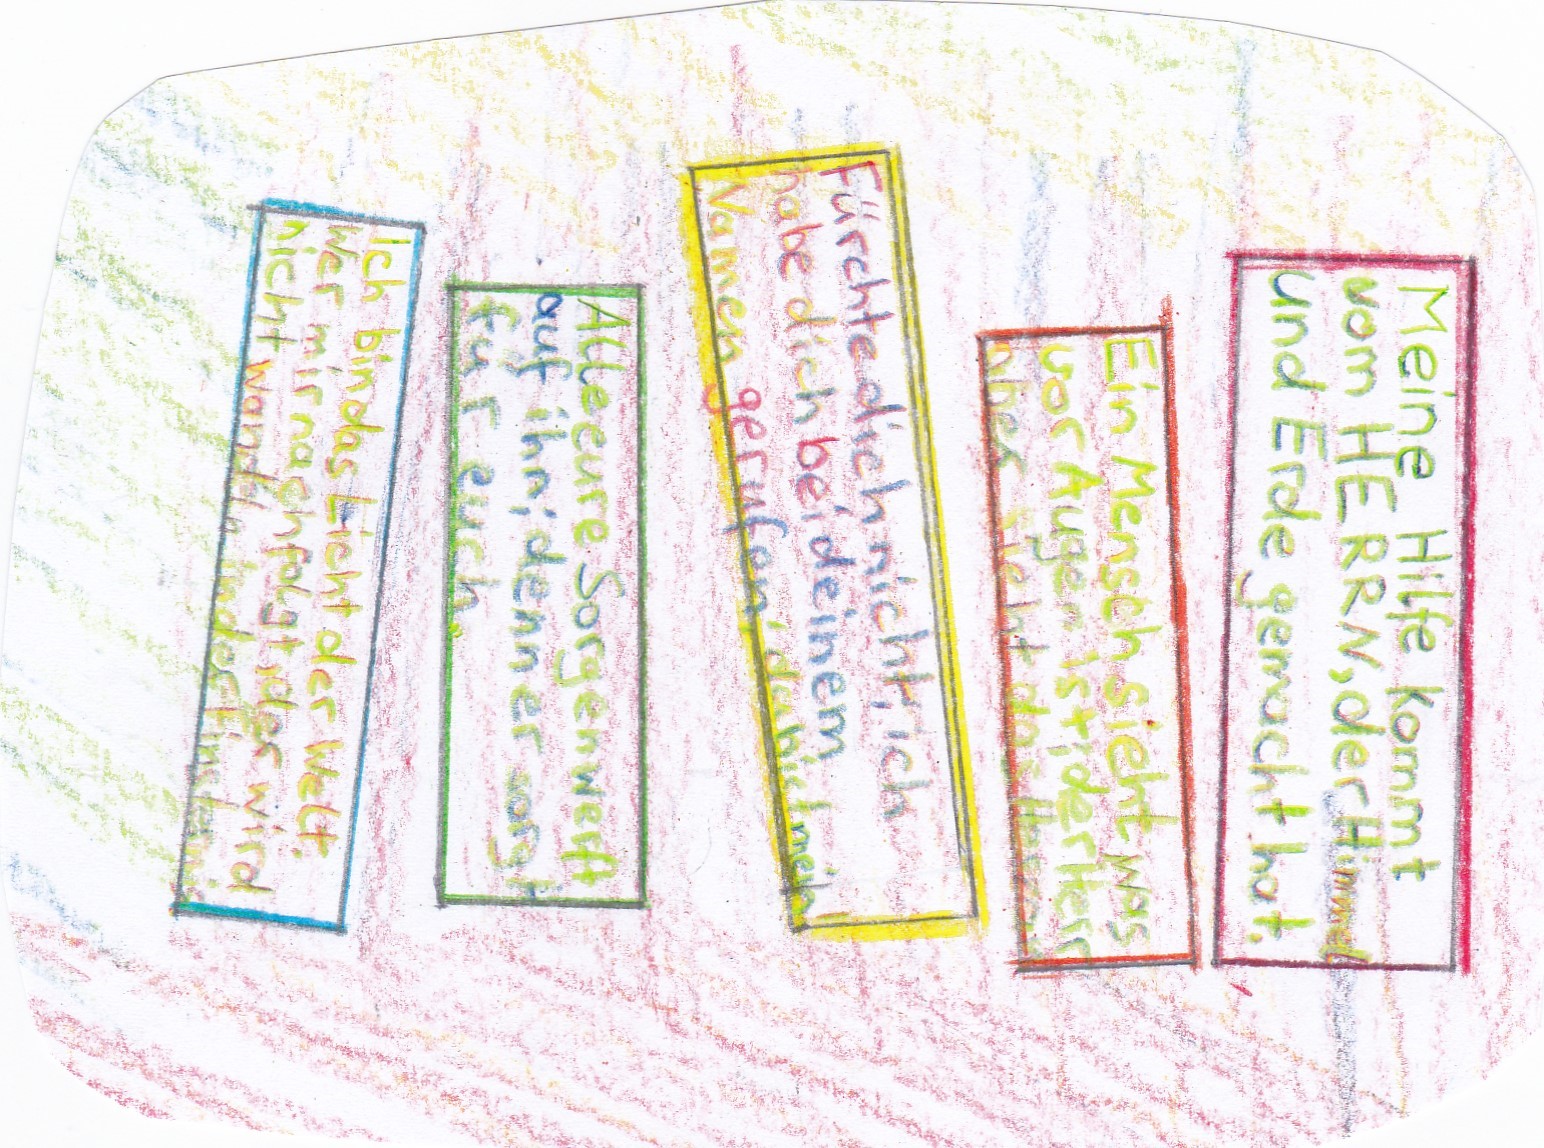 Meine Hilfe kommt
vom HERRN, der Himmel
und Erde gemacht hat.
Ein Mensch sieht was
vor Augen ist; der Herr
aber sieht das Herz
Fürchte dich nicht; ich
habe dich bei deinem
Namen gerufen; du bist mein!
Alle eure Sorgen werft
auf ihn; denn er sorgt
für euch.
Ich bin das Licht der Welt.
Wer mir nachfolgt, der wird
nicht wandeln in der Finsternis.